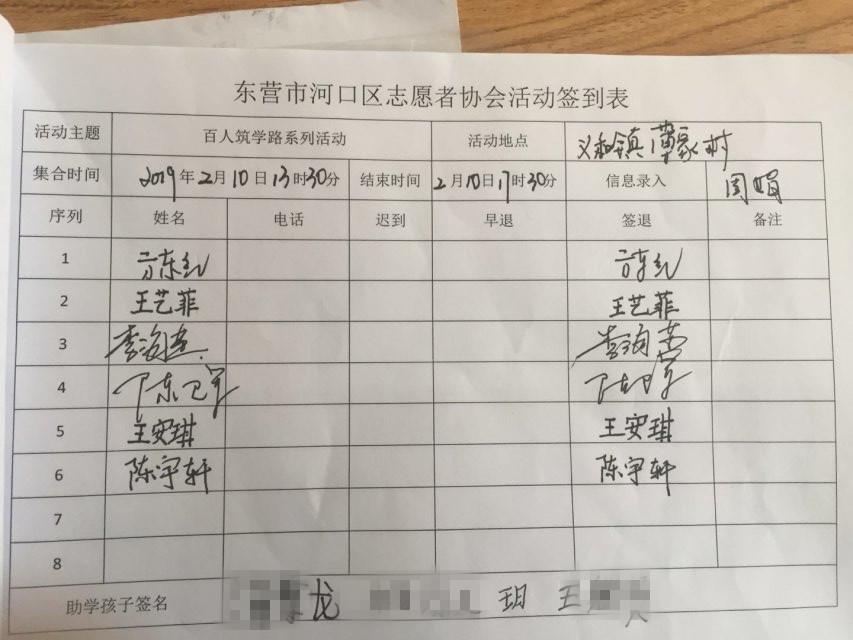 东营市河口区志愿者协会活动签到表
活动主题 百人筑学路系列活动 活动地点 义和镇 家村
集合时间 2019年2月10日13时30分 结束时间 2月10日17时30分 信息录入 周娟
序列 姓名 电话 迟到 早退 签退 备注
1
2 王艺菲 王艺菲
3 李海 李海
4
5 王安琪 王安琪
6 陈宇轩 陈宇轩
7
8
助学孩子签名 龙 玥 王